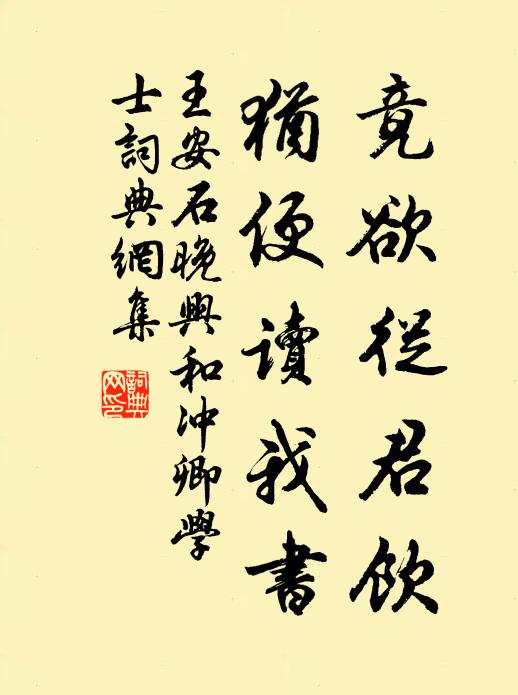 竟欲從君飲
猶便讀我書
王安石晚興和沖卿學
士詞典網集
詞典
网印